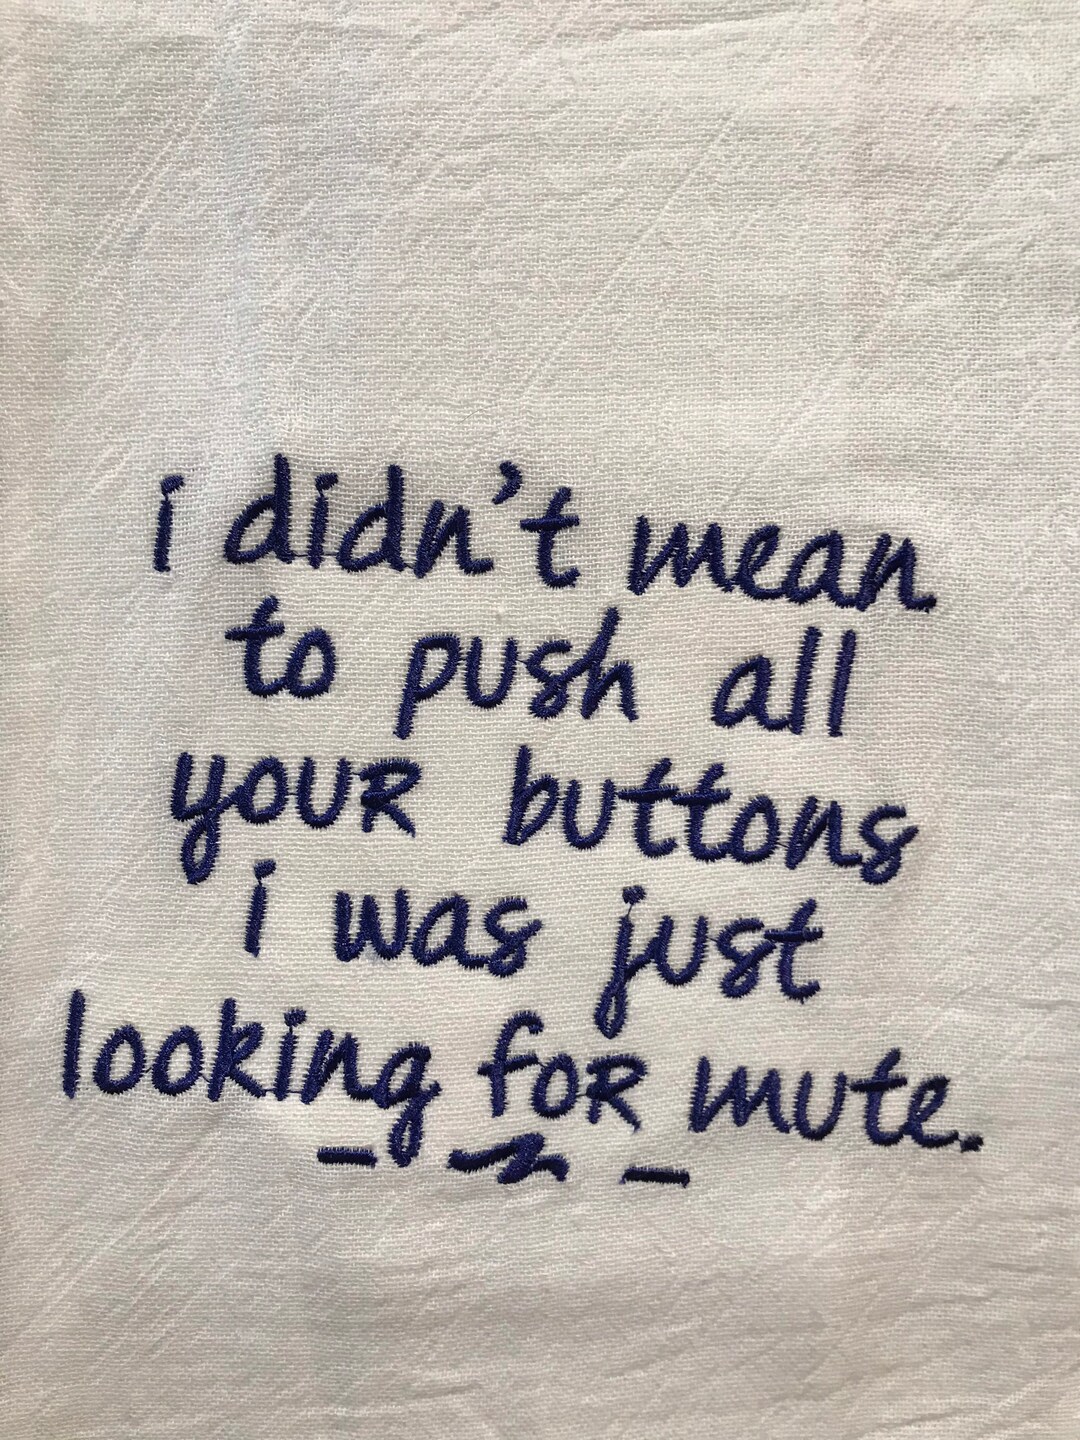 i didn't mean
to push all
youR buttons
i was just
looking foR mute.